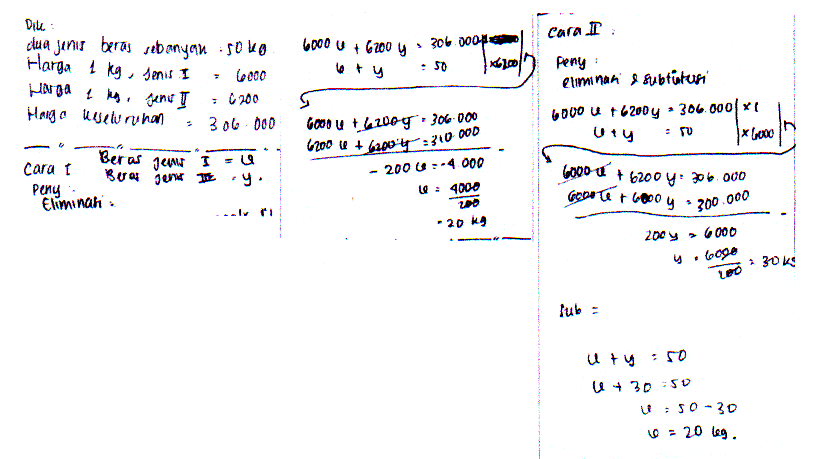 Dik:
dua jenis beras sebanyak : 50 kg
Harga 1 kg, jenis I = 6000
Harga 1 kg, jenis II = 6200
Harga keseluruhan = 306.000
Cara I Beras jenis I = u
Beras jenis II = y.
Peny :
Eliminasi :
6000 u + 6200 y = 306.000
u + y = 50 | x6200 |
6000 u + 6200 y = 306.000
6200 u + 6200 y = 310.000
- 200 u = -4.000
u = 4000
200
= 20 kg
Cara II :
Peny :
eliminasi & subtitusi
6000 u + 6200 y = 306.000 | x 1
u + y = 50 | x 6000
6000 u + 6200 y = 306.000
6000 u + 6000 y = 300.000
200 y = 6000
y = 6000 = 30 kg
200
Sub =
u + y = 50
u + 30 = 50
u = 50 - 30
u = 20 kg.